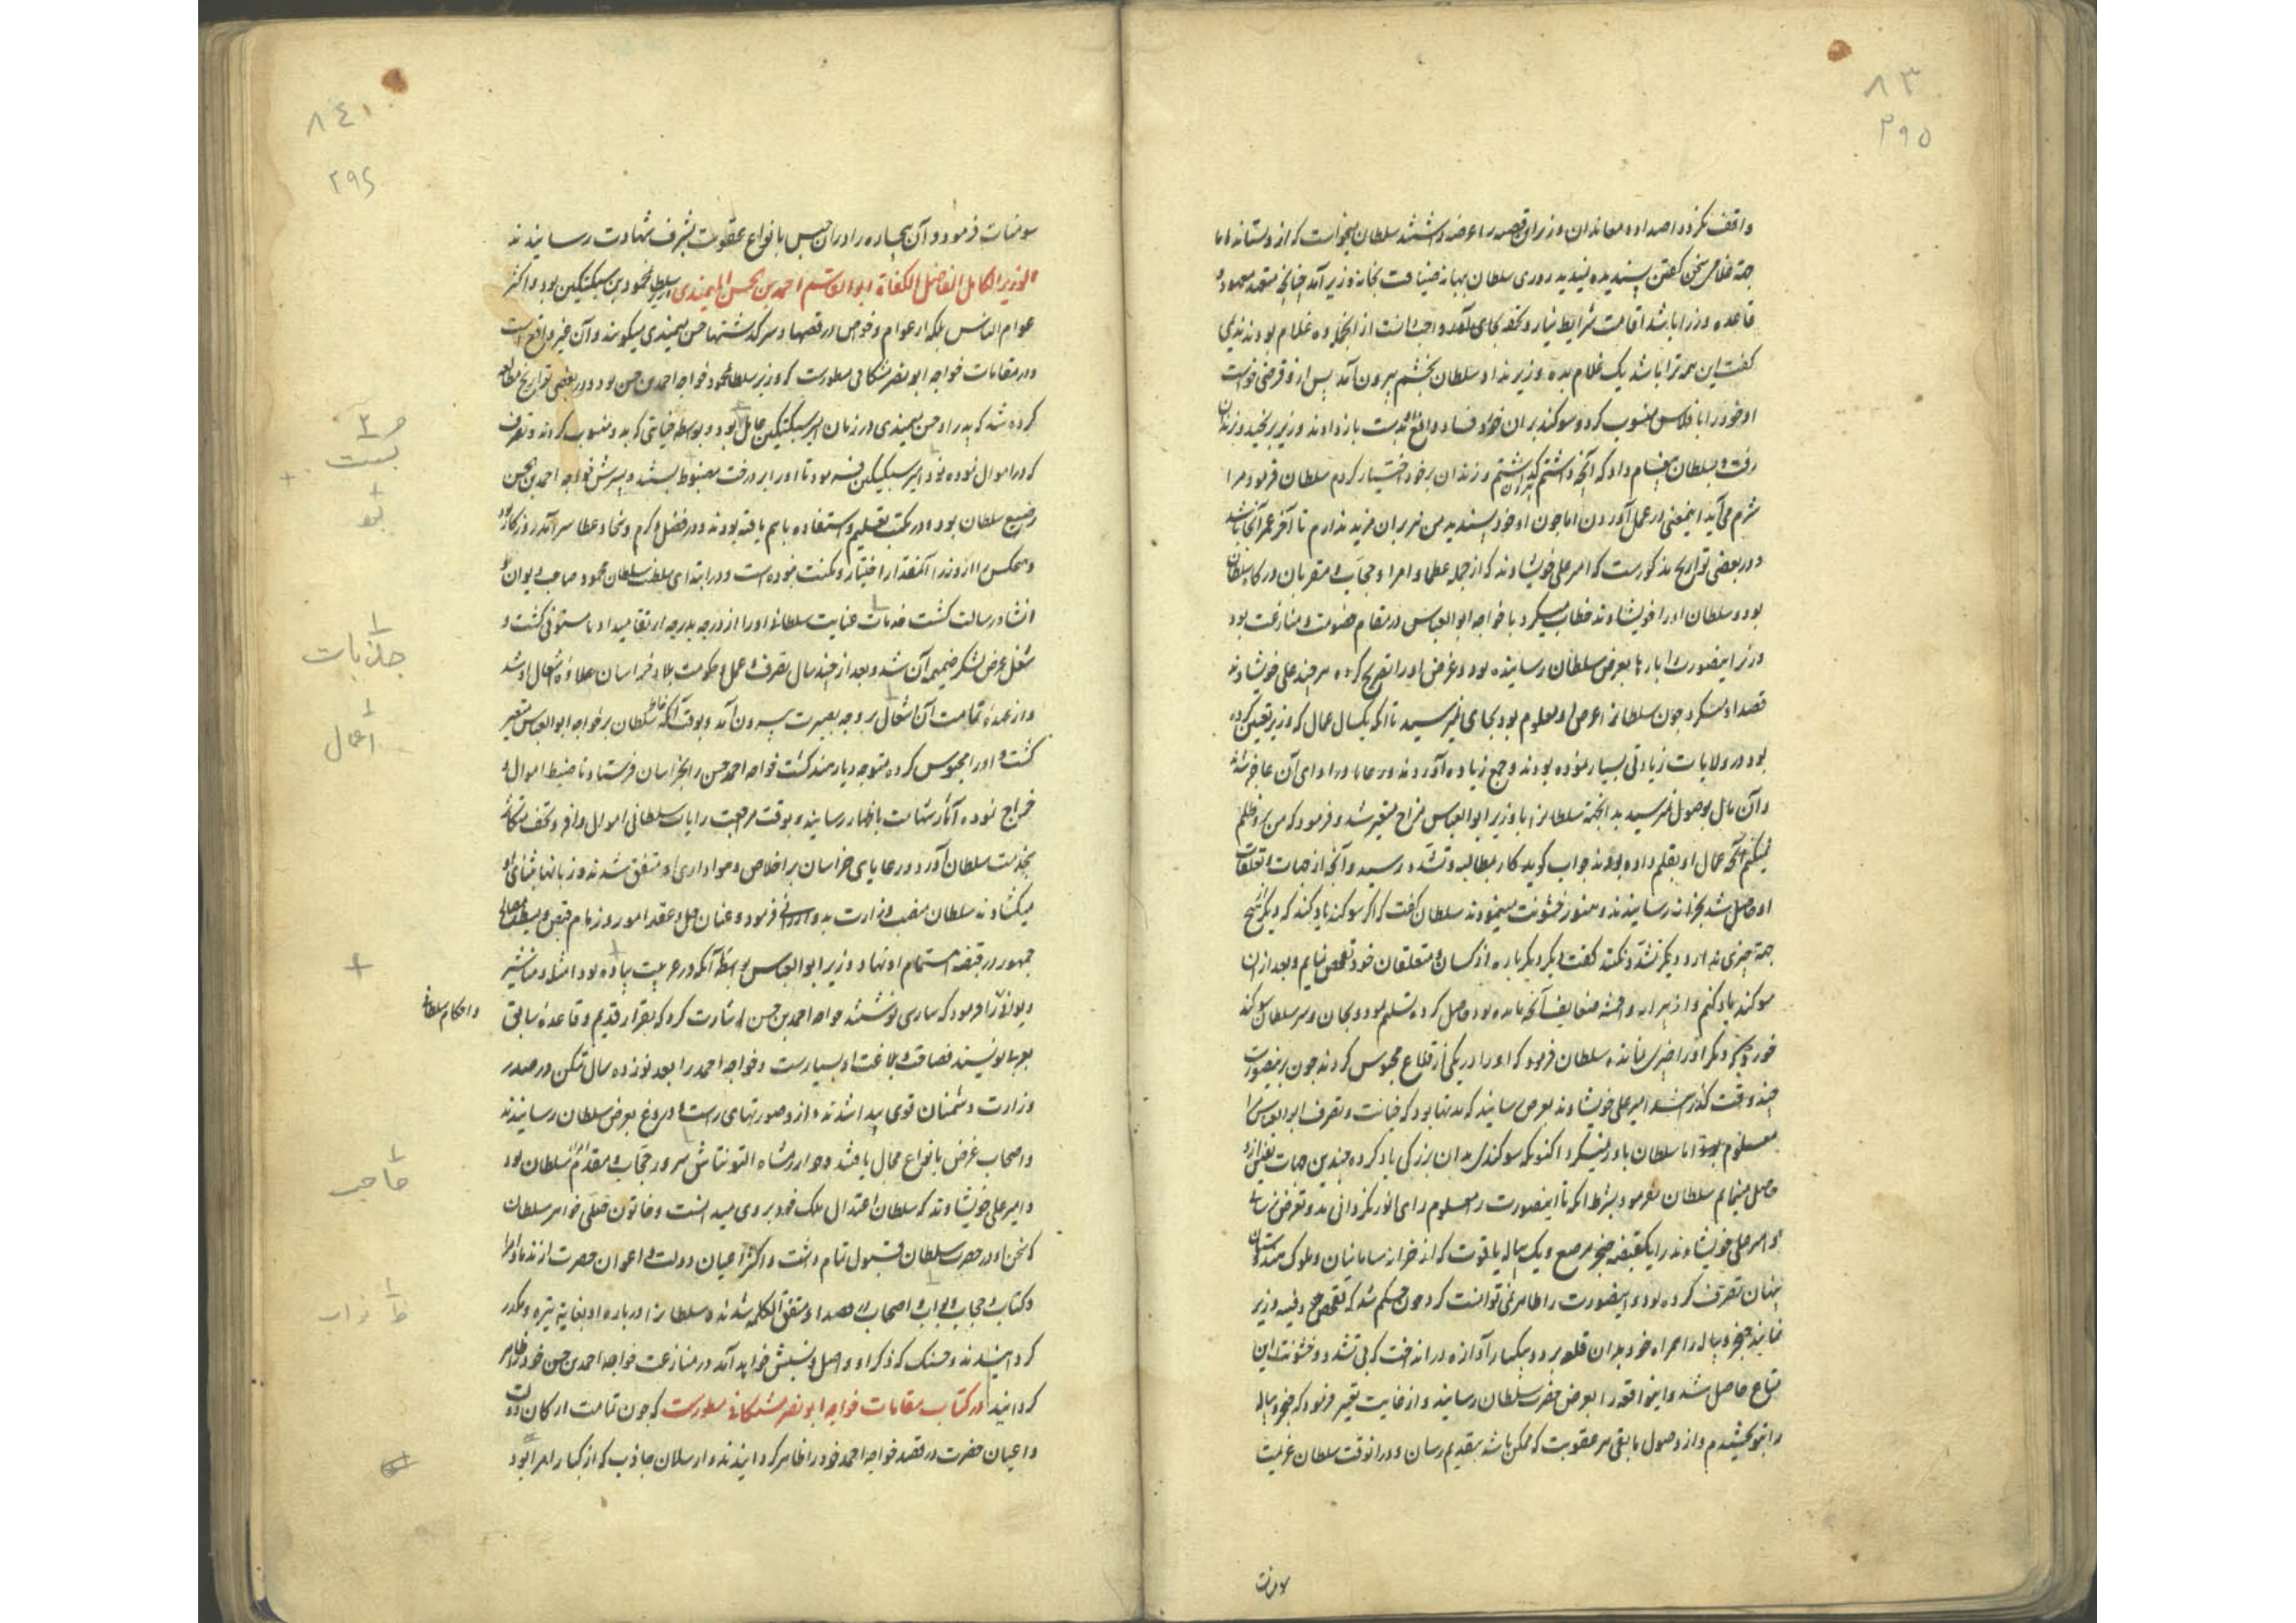 ۸۳
۲۹۵
واقف نکردد اصداد و معاندان وزیر این قصه را عرضه داشتند سلطان میخواست که از و بستاند اما
جهة غلامی سخن گفتن پسندیده ندید روزی سلطان ببهانه ضیافت بخانه وزیر آمد چنانچه متعهد معهود و
قاعده وزرا باشد اقامت شرایط نیاز و تحفه بجای آورد و اجب داشت از انجمله ده غلام بودند ندیمی
کفت این همه ترا باشد یک غلام بده وزیر نداد سلطان بخشم بیرون آمد پس از و قرضی خواست
او خود را بافلاس منسوب کرد و سوکند بران خورد وزیر برنجید و بزندان
رفت و بسلطان پیغام داد که آنچه داشتم کذاشتم و زندان بر خود اختیار کردم سلطان فرمود مرا
شرم می آید اینمعنی در عمل آوردن اما چون او خود پسندید من نیز بران مزید ندارم تا آخر عمر آنجا باشد
و در بعضی تواریخ مذکورست که امیر علی خویشاوند که از جمله عظما و امرا و حجاب و مقربان درکاه سلطان
بود و سلطان او را خویشاوند خطاب میکرد با خواجه ابو العباس در مقام خصومت و منازعت بود
وزیر اینصورت را بارها بعرض سلطان رسانیده بود و غرض او را تصریح کرده هر چند علی خویشاوند
قصد او میکرد چون سلطان را غرض او معلوم بود بجای نمیرسید تا انکه یکسال عمال که وزیر تعیین کرده
بود در ولایات زیادتی بسیار نموده بودند و جمع زیاده آورده و رعایا در ادای آن عاجز شدند
و آن مال بوصول نمیرسید بدانجهة سلطان را با وزیر ابو العباس مزاج متغیر شد و فرمود که من بر و ظلم
نمیکنم آنچه عمال او بقلم داده بودند جواب کوید کار بمطالبه و تشدد رسید و آنچه از جهات و تعلقات
او حاصل شد بخزانه رسانیدند و هنوز خشونت مینمودند سلطان کفت که اکر سوکند یاد کند که دیکر هیچ
جهة چیزی ندارد دیکر تشدد نکنند کفت یکبار دیکر باره از کسان و متعلقان خود تفحص نمایم و بعد از ان
سوکند یاد کنم و از پیرایه و اقمشه ضعایف آنچه مانده بود حاصل کرده تسلیم نمود و بجان و سر سلطان سوکند
خورد که دیکر او را چیزی نمانده سلطان فرمود که او را در یکی از قلاع محبوس کردند چون بر ینصورت
چند وقت کذشت امیر علی خویشاوند بعرض رسانید که مدتها بود که خیانت و تصرف ابو العباس را
معلوم بود اما سلطان باور نمیکرد اکنون که سوکندی بدان بزرکی یاد کرده چندین جهات
حاصل مینمایم سلطان فرمود بشرط انکه تا اینصورت را معلوم رای انور نکردانی بدو تعرض نرسانی
و امیر علی خویشاوند را یکقبضه خنجر مرصع و یک پیاله یاقوت که از خزاین سامانیان و ملوک هندوستان
پنهان تصرف کرده بود و اینصورت را ظاهر نمی توانست کرد چون حکم شد که تفحص دفینه وزیر
نمایند خنجر و پیاله را همراه خود بدان قلعه برد و بیکبار آوازه در انداخت که بی تشدد و خشونت این
متاع حاصل شد و اینواقعه را بعرض حضرت سلطان رسانید و از غایت تغیر فرمود که خنجر و پیاله
را بتو بخشیدم و از وصول مابقی هر عقوبت که ممکن باشد بتقدیم رسان و در انوقت سلطان عزیمت
سومنات
۸٤
۲۹٤
سومنات فرمود و آن بیچاره را در ان حبس بانواع عقوبت بشرف شهادت رسانیدند
الوزیر الکامل الفاضل الکفاة ابو القاسم احمد بن الحسن المیمندی وزیر سلطان محمود بن سبکتکین بود و اکثر
عوام الناس بلکه از عوام و خواص در قصها و سرکذشتها حسن میمندی میکویند و آن غیر واقع است
و در مقامات خواجه ابو نصر مشکانی مسطورست که وزیر سلطان محمود خواجه احمد بن حسن بود و در بعضی تواریخ مطالعه
کرده شد که پدر او حسن میمندی در زمان امیر سبکتکین عامل بست بود و بواسطه خیانتی که بدو منسوب کردند و تصرف
که در اموال نموده بود امیر سبکتکین فرمود تا او را بر درخت مضبوط ببستند و پسرش خواجه احمد بن الحسن
رضیع سلطان بود و در مکتب تعلیم و استفاده باهم یافته بودند و در فضل و کرم و سخا و عطا سرآمد روزکار بود
و هیچکس را از وزرا آنمقدار اختیار و مکنت نبوده است و در ابتدای سلطنت سلطان محمود صاحب دیوان
انشا و رسالت کشت جذبات عنایت سلطان او را از درجه بدرجه ارتقا میداد تا مستوفی کشت و
شغل عرض لشکر ضمیمه آن شد و بعد از چند سال تصرف و عمل و حکومت بلاد خراسان علاوه اشغال او شد
و از عهده تمامت آن اشغال بر وجه بصیرت بیرون آمد و بوقت آنکه خاطر سلطان بر خواجه ابو العباس متغیر
کشت و او را محبوس کرده متوجه دیار هند کشت خواجه احمد حسن را بخراسان فرستاد تا ضبط اموال و
خراج نموده آثار شهامت باظهار رسانید و بوقت مراجعت رایات سلطانی اموال وافر و تحف متکاثر
بخدمت سلطان آورد و رعایای خراسان بر اخلاص و هواداری او متفق شدند و زبانها بثنای او
میکشادند سلطان منصب وزارت بدو ارزانی فرمود و عنان حل و عقد امور و زمام قبض و بسط مصالح
جمهور در قبضه اهتمام او نهاد و وزیر ابو العباس بواسطه آنکه در عربیت پیاده بود امثله و مناشیر
و احکام سلطانی
دیوان را فرمود که بپارسی نوشتند خواجه احمد بن حسن اشارت کرد که بقرار قدیم و قاعده سابق
بعربی نویسند فصاحت و بلاغت او بسیارست و خواجه احمد را بعد نوزده سال تمکن در صدر
وزارت دشمنان قوی پیدا شدند و از و صورتهای راست و دروغ بعرض سلطان رسانیدند
و اصحاب غرض بانواع مجال یافتند و خوارزمشاه التونتاش سرور حجاب و مقدم امرا سلطان بود
و امیر علی خویشاوند که سلطان اعتدال ملک خود بر وی میدانست و خاتون ختلی خواهر سلطان
که سخن او در حضرت سلطان قبول تمام داشت و اکثر اعیان دولت و اعوان حضرت از ندما و امرا
و کتاب و حجاب و نواب و اصحاب در قصد او متفق الکلمه شدند و سلطان را در باره او بغایة تیره و مکدر
کردانیدند و حسنک که ذکر او و اصل و نسبش خواهد آمد در منازعت خواجه احمد بن حسن خود را ظاهر
کردانید در کتاب مقامات خواجه ابو نصر مشکانی مسطورست که چون تمامت ارکان دولت
و اعیان حضرت در قصد خواجه احمد خود را ظاهر کردانیدند و ارسلان جاذب که از کبار امرا بود
بست
جذبات
اعمال
حاجب